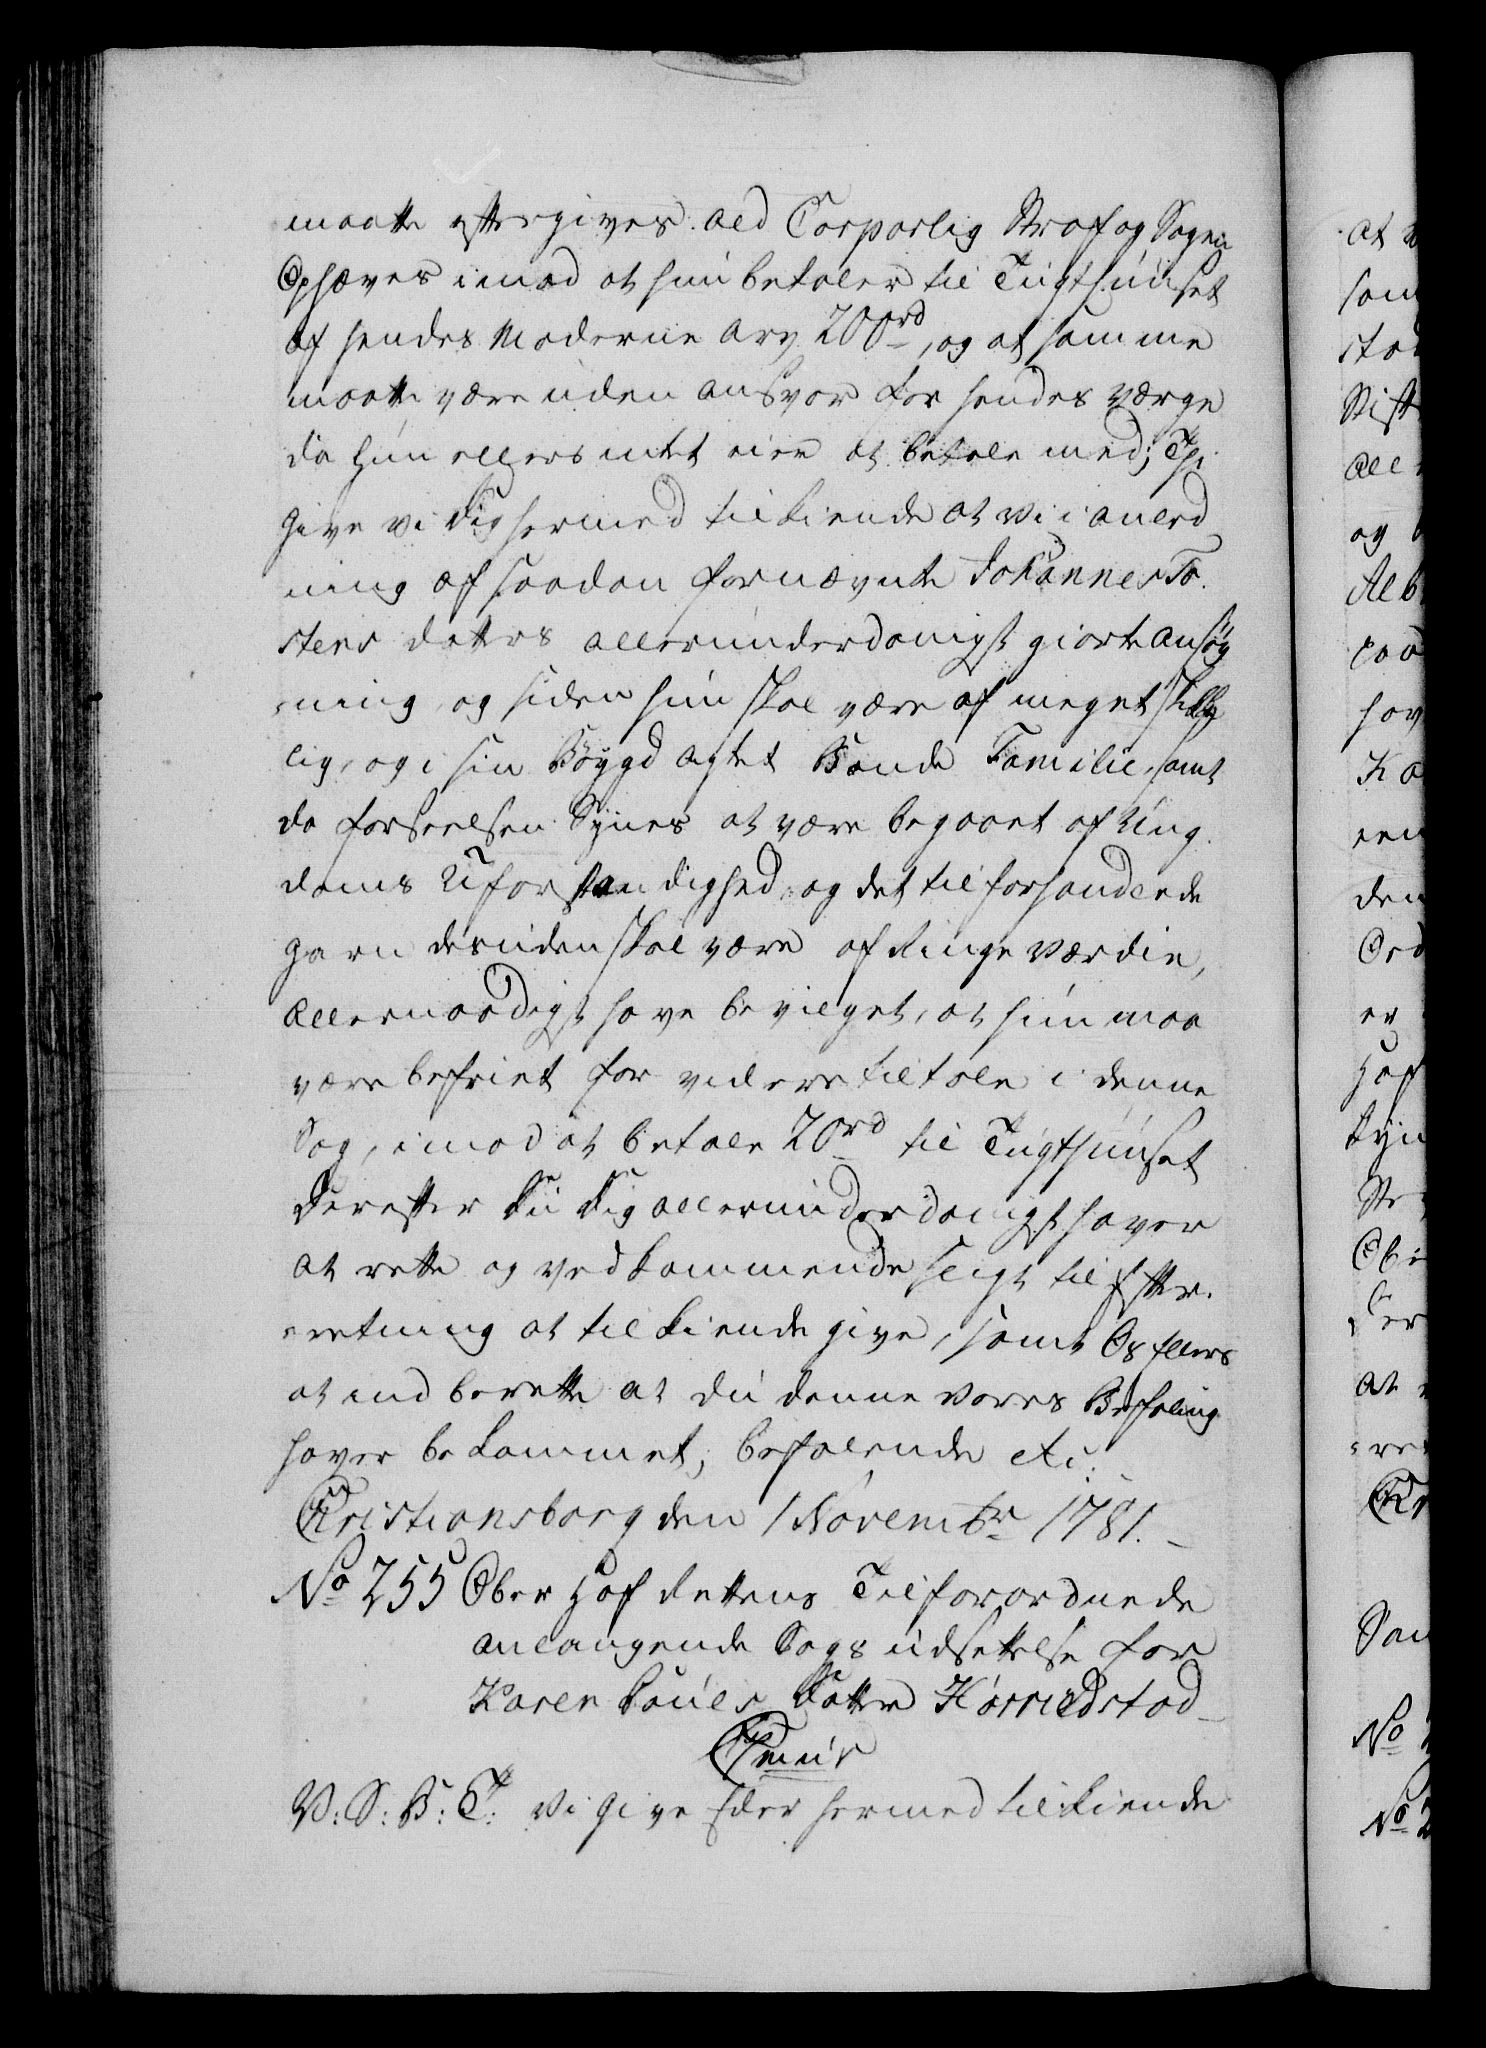 maatte eftergives ald Corporlig Straf og Sagen
Ophæves imod at hun betaler til Tugthuuset
af hendes Moderne Arv 200rd, og at samme
maatte være uden ansvar for hendes værge
da hun ellers intet eier at betale med; Thi
Give vi dig hermed tilkiende at vi i anled
ning af saadan fornævnte Johannes To
stens datters allerunderdanigst giorte ansøg
ning, og siden hun skal være af meget skikke
lig, og i sin Bøygd agtet Bonde Familie, samt
da forseelsen Synes at være begaaet af Ung
doms Uforstandighed, og det tilforhandlede
garn desuden skal være af Ringe værdie,
allernaadigst have bevilget, at hun maa
være befriet for videre tiltale i denne
Sag, imod at betale 20rd til Tugthuuset
Derefter Du Dig allerunderdanigst haver
at rette og vedkommende sligt til Efter
retning at tilkiende give, samt Os ellers
at indberette at du denne vores Befaling
haver bekommet; befalende etc.
Christiansborg den 1 Novembr 1781.
No 255 Ober Hof Rettens Tilforordnede
anlangende Sags udsettelse for
Karen Poüels Datter Horriedstad
V: S: B: T: Vi Give Eder hermed tilkiende